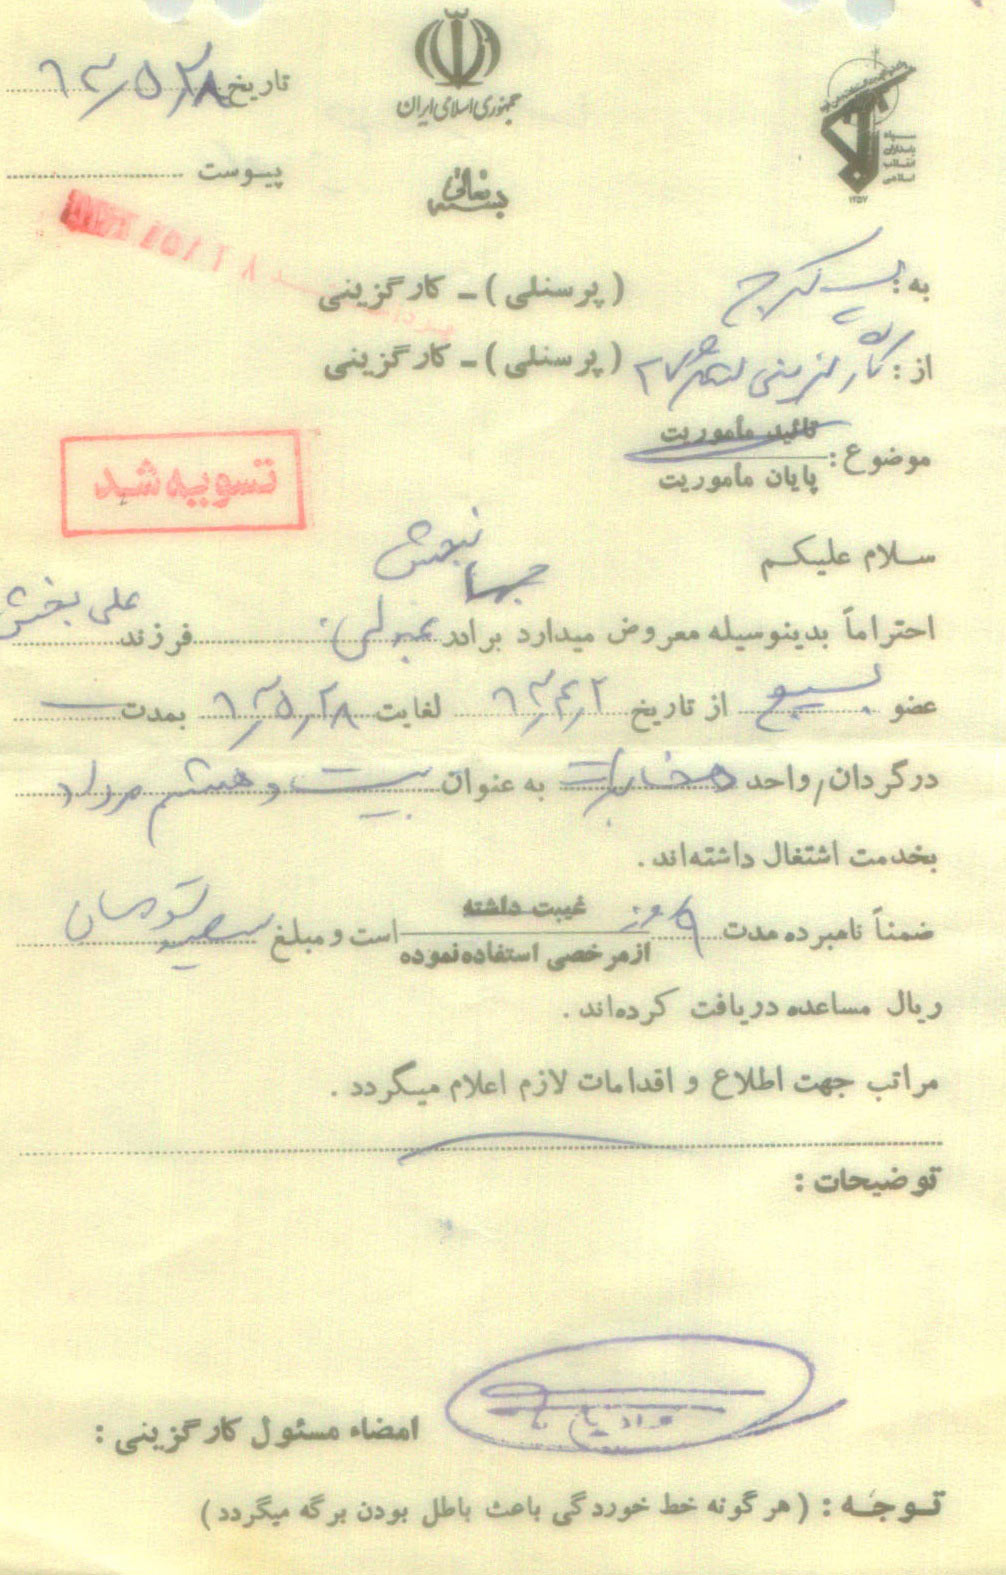 جمهوری اسلامی ایران
سپاه
پاسداران
انقلاب
اسلامی
۱۳۵۷
تاریخ ۶۳/۵/۲۸
پیوست
بسمه تعالی
به: بسیج کرج (پرسنلی) - کارگزینی
از: کارگزینی لشکر ۲۷ (پرسنلی) - کارگزینی
موضوع: تائید مأموریت
پایان مأموریت
تسویه شد
سلام علیکم
احتراماً بدینوسیله معروض میدارد برادر جهانبخش فرزند علی بخش
عضو بسیج از تاریخ ۶۳/۴/۲ لغایت ۶۳/۵/۲۸ بمدت
در گردان/واحد مخابرات به عنوان بیست و هشتم مرداد
بخدمت اشتغال داشته‌اند.
ضمناً نامبرده مدت روز غیبت داشته
از مرخصی استفاده نموده است و مبلغ سیصد تومان
ریال مساعده دریافت کرده‌اند.
مراتب جهت اطلاع و اقدامات لازم اعلام میگردد.
توضیحات:
امضاء مسئول کارگزینی:
توجه: (هرگونه خط خوردگی باعث باطل بودن برگه میگردد)